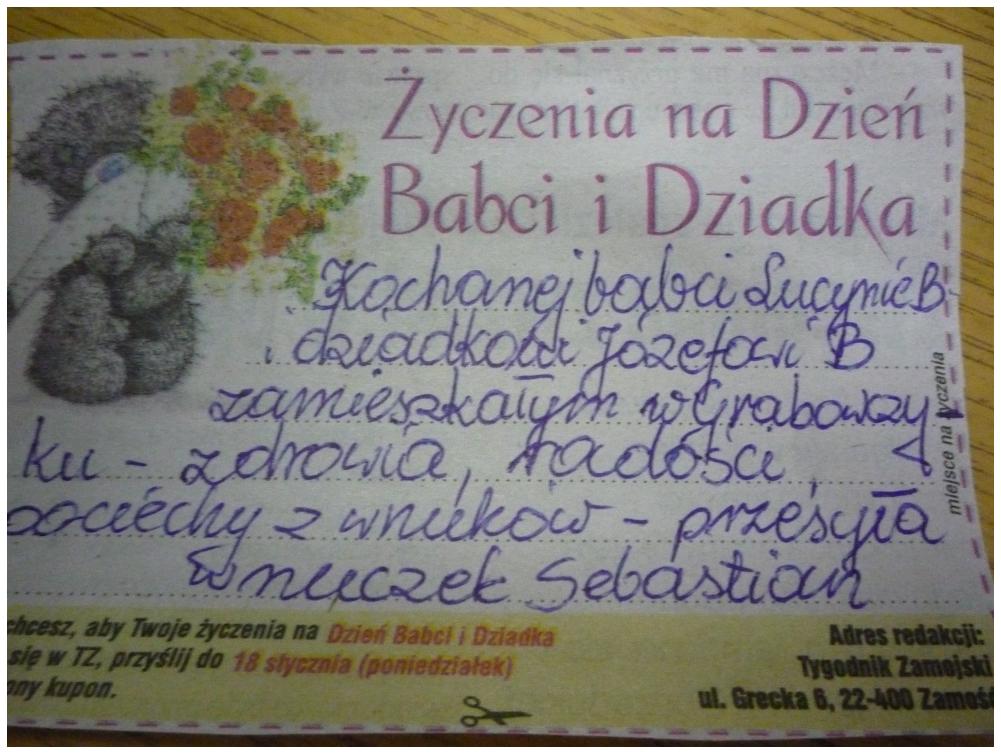 Życzenia na Dzień
Babci i Dziadka
Kochanej babci Lucynie B.
i dziadkowi Józefowi B
zamieszkałym w Grabowczy
ku - zdrowia, radości,
pociechy z wnuków - przesyła
wnuczek Sebastian
miejsce na życzenia
chcesz, aby Twoje życzenia na Dzień Babci i Dziadka
się w TZ, przyślij do 18 stycznia (poniedziałek)
ony kupon.
Adres redakcji:
Tygodnik Zamojski
ul. Grecka 6, 22-400 Zamość